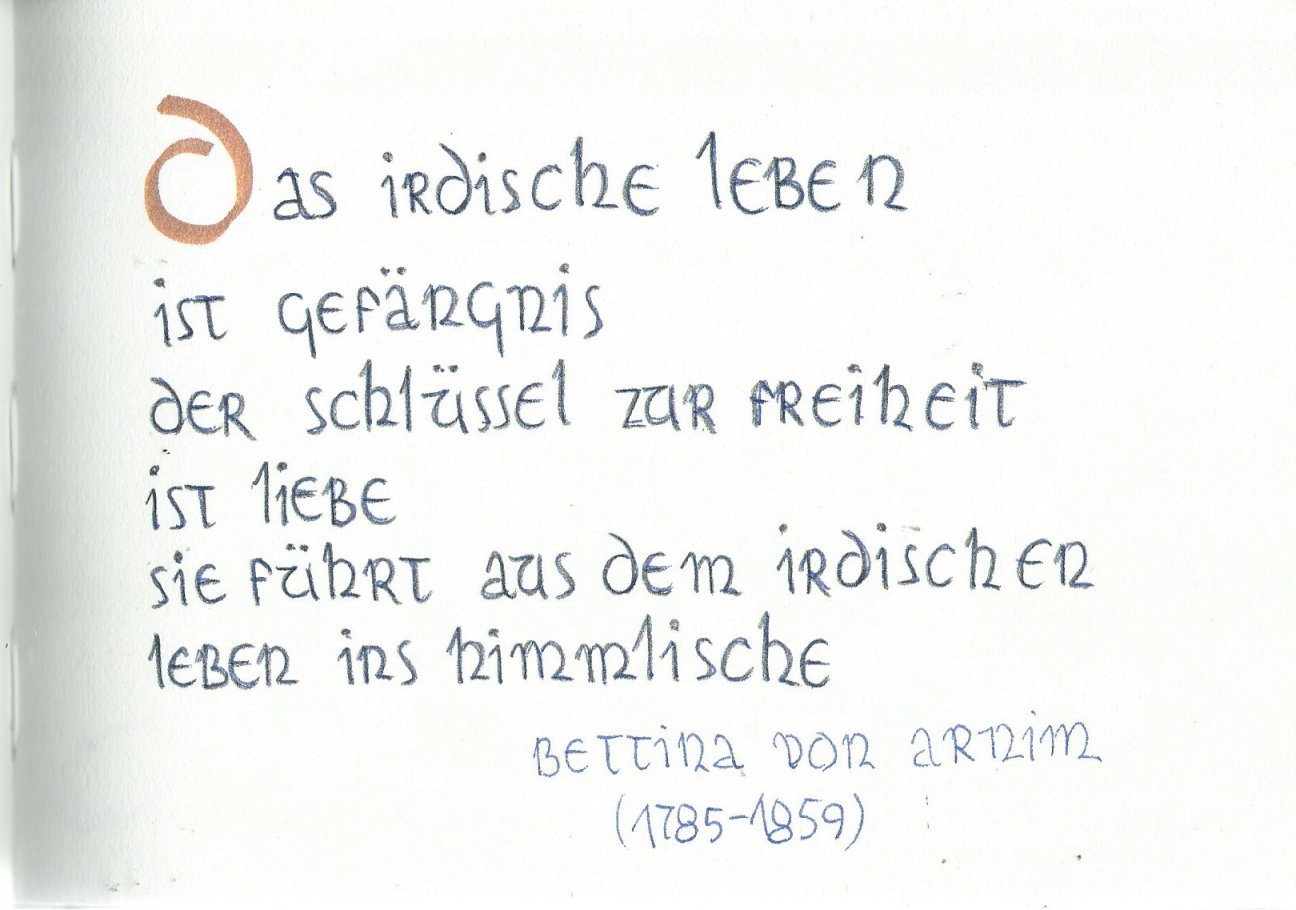 Das irdische leben
ist gefängnis
der schlüssel zur freiheit
ist liebe
sie führt aus dem irdischen
leben ins himmlische
Bettina von Arnim
(1785-1859)